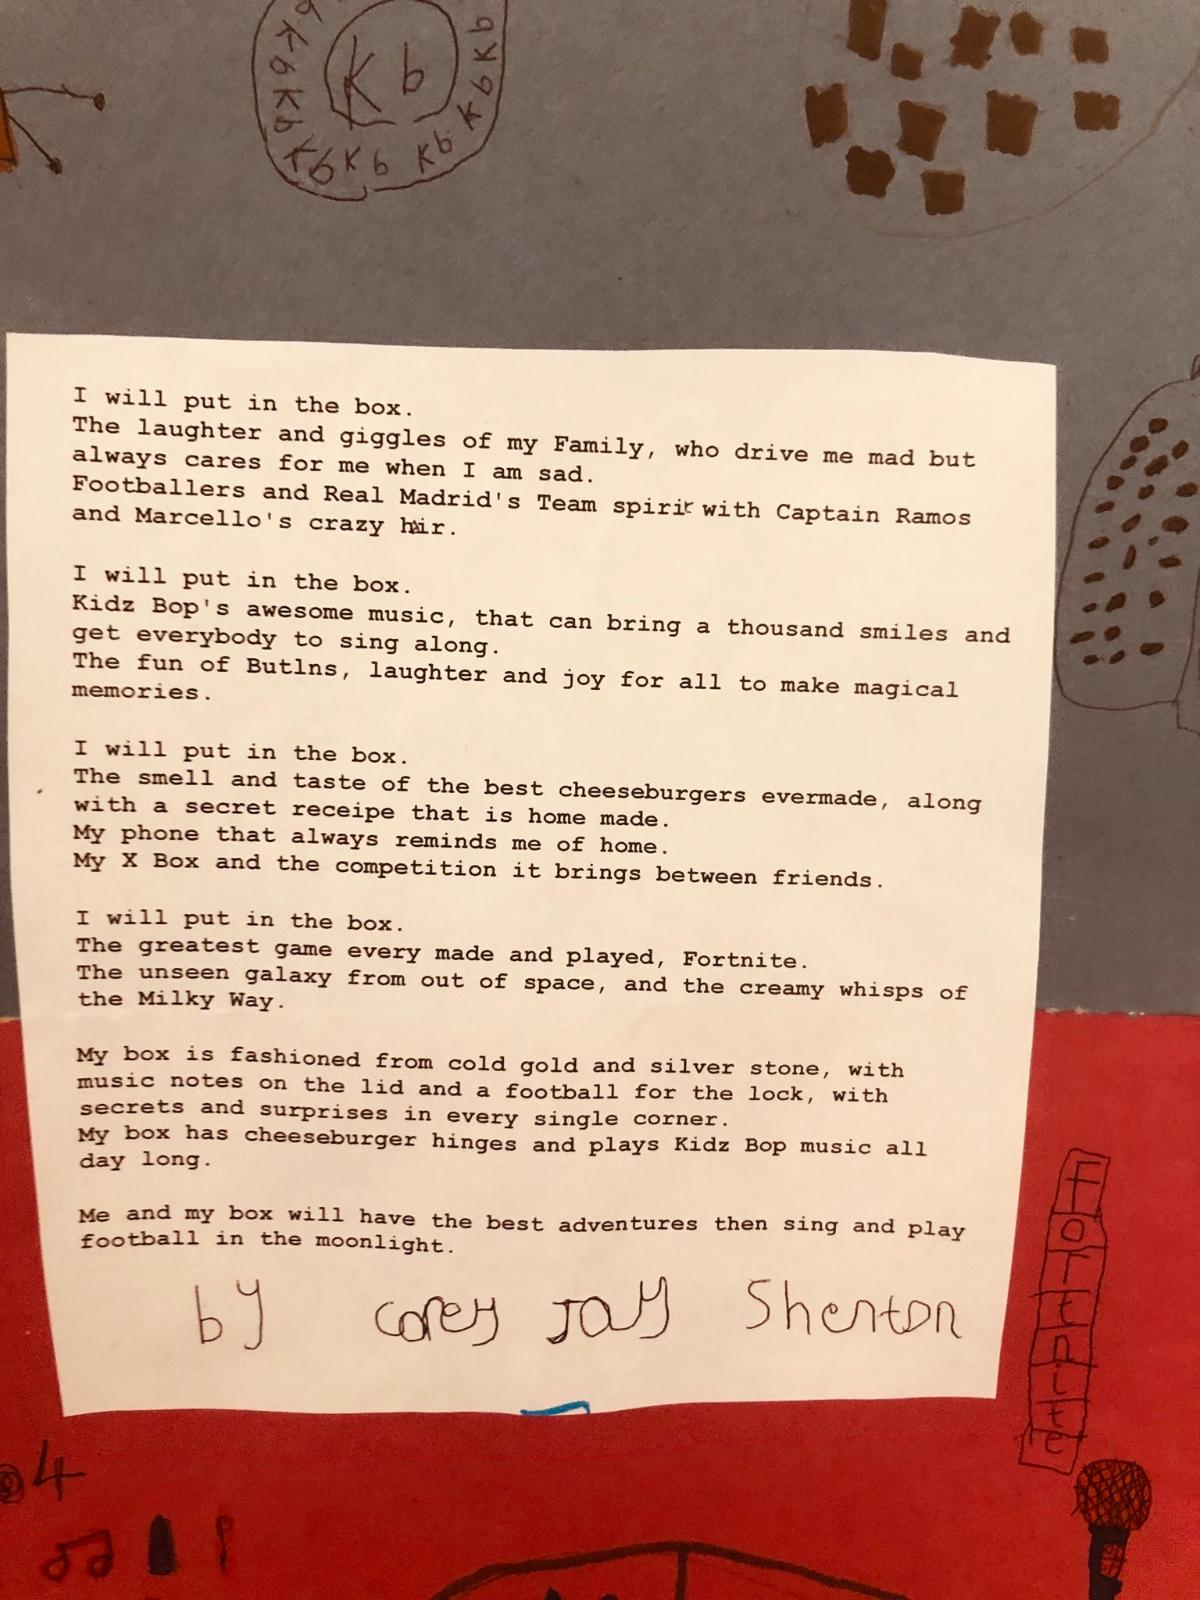 Kb
Kb Kb Kb Kb Kb Kb Kb Kb
I will put in the box.
The laughter and giggles of my Family, who drive me mad but
always cares for me when I am sad.
Footballers and Real Madrid's Team spirit with Captain Ramos
and Marcello's crazy hair.
I will put in the box.
Kidz Bop's awesome music, that can bring a thousand smiles and
get everybody to sing along.
The fun of Butlns, laughter and joy for all to make magical
memories.
I will put in the box.
The smell and taste of the best cheeseburgers evermade, along
with a secret receipe that is home made.
My phone that always reminds me of home.
My X Box and the competition it brings between friends.
I will put in the box.
The greatest game every made and played, Fortnite.
The unseen galaxy from out of space, and the creamy whisps of
the Milky Way.
My box is fashioned from cold gold and silver stone, with
music notes on the lid and a football for the lock, with
secrets and surprises in every single corner.
My box has cheeseburger hinges and plays Kidz Bop music all
day long.
Me and my box will have the best adventures then sing and play
football in the moonlight.
by Corey Jay Shenton
Fortnite
4